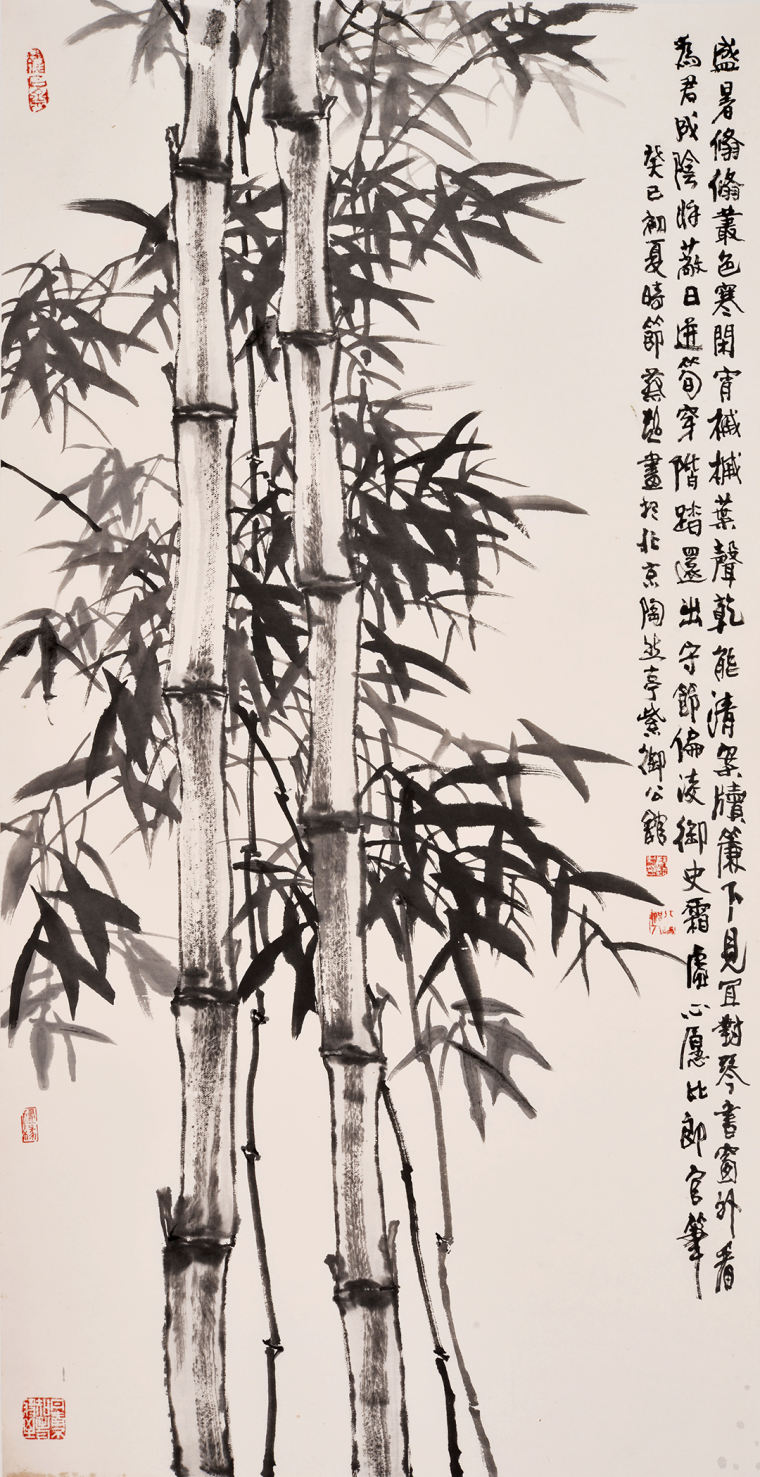 盛暑翛翛叢色寒閑宵槭槭葉聲乾能清案牘簾下見宜對琴書窗外看
為君成陰將蔽日迸筍穿階踏還出守節偏淩御史霜虛心愿比郎官筆
癸巳初夏時節畫於北京陶然亭紫御公館